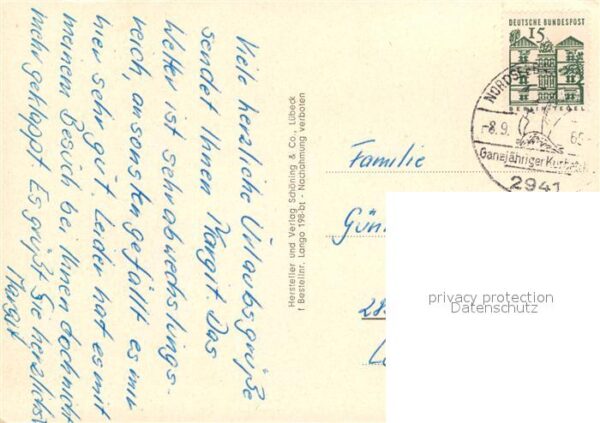 Viele herzliche Urlaubsgrüße
sendet Ihnen Margit. Das
Wetter ist sehr abwechslungs-
reich, ansonsten gefällt es mir
hier sehr gut. Leider hat es mit
meinem Besuch bei Ihnen doch nicht
mehr geklappt. Es grüßt Sie herzlichst
Margit
Hersteller und Verlag Schöning & Co., Lübeck
Bestellnr. Lango 198-bt - Nachahmung verboten
Familie
Gün
28
DEUTSCHE BUNDESPOST
15
BERLIN-TEGEL
NORDSEE
-8.9.
65-
Ganzjähriger
2941
privacy protection
Datenschutz